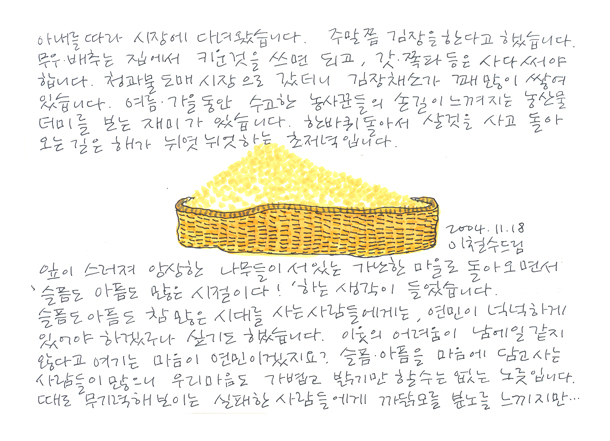 아내를 따라 시장에 다녀왔습니다. 주말쯤 김장을 한다고 했습니다.
무우·배추는 집에서 키운것을 쓰면 되고, 갓·쪽파 등은 사다 써야
합니다. 청과물 도매 시장으로 갔더니 김장채소가 꽤 많이 쌓여
있습니다. 여름·가을 동안 수고한 농사꾼들의 손길이 느껴지는 농산물
더미를 보는 재미가 있습니다. 한바퀴 돌아서 살것을 사고 돌아
오는 길은 해가 뉘엿 뉘엿하는 초저녁입니다.
2004.11.18
이철수드림
잎이 스러져 앙상한 나무들이 서 있는 가난한 마을로 돌아오면서
'슬픔도 아픔도 많은 시절이다!' 하는 생각이 들었습니다.
슬픔도 아픔도 참 많은 시대를 사는 사람들에게는, 연민이 넉넉하게
있어야 하겠구나 싶기도 했습니다. 이웃의 어려움이 남에일 같지
않다고 여기는 마음이 연민이겠지요? 슬픔·아픔을 마음에 담고 사는
사람들이 많으니 우리마음도 가볍고 밝기만 할수는 없는 노릇입니다.
때로 무기력해 보이는 실패한 사람들에게 까닭모를 분노를 느끼지만…